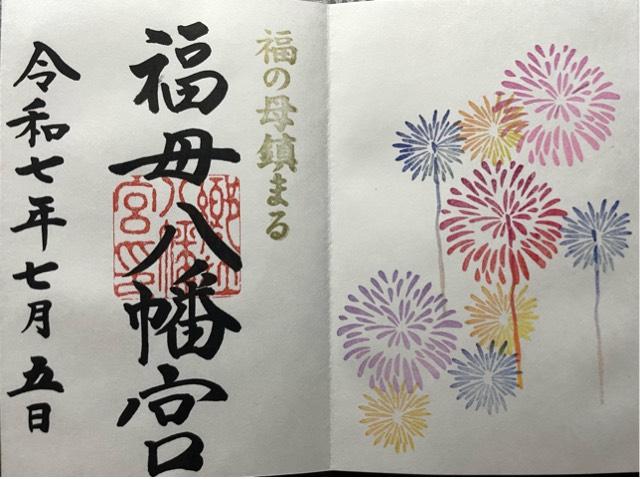 福の母鎮まる
福母八幡宮
令和七年七月五日